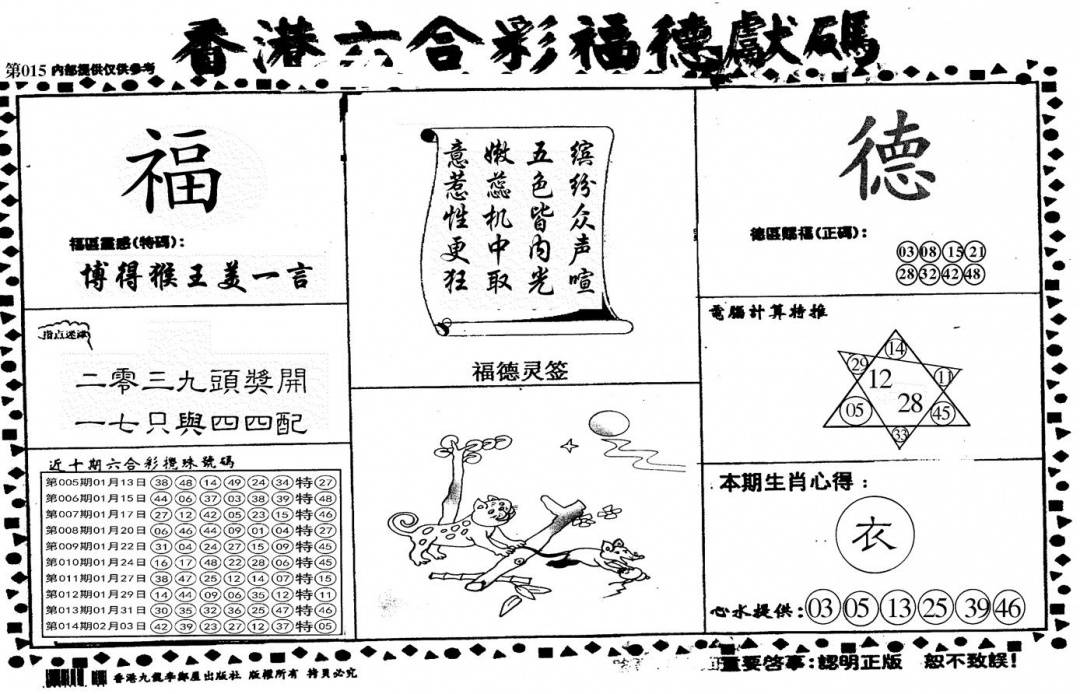 香港六合彩福德獻碼
第015 內部提供仅供參考
福
福區靈感(特碼)：
博得猴王美一言
指点迷津
二零三九頭獎開
一七只與四四配
近十期六合彩攪珠號碼
第005期01月13日 38 48 14 49 24 34 特 27
第006期01月15日 44 06 37 03 38 39 特 48
第007期01月17日 27 12 42 05 23 15 特 46
第008期01月20日 06 46 44 09 01 04 特 27
第009期01月22日 31 04 24 27 15 09 特 45
第010期01月24日 16 17 48 22 28 06 特 45
第011期01月27日 38 47 25 12 14 07 特 15
第012期01月29日 14 44 09 06 35 12 特 11
第013期01月31日 30 35 32 36 25 47 特 46
第014期02月03日 42 39 23 27 12 37 特 05
缤纷众声喧
五色皆内光
嫩蕊机中取
意惹性更狂
福德灵签
德
德區賜福(正碼)：
03 08 15 21
28 32 42 48
電腦計算特推
14
29
11
12
28
05
45
33
本期生肖心得：
衣
心水提供：03 05 13 25 39 46
香港九龍李鄭屋出版社 版權所有 拷貝必究
重要啓事：認明正版 恕不致誤！